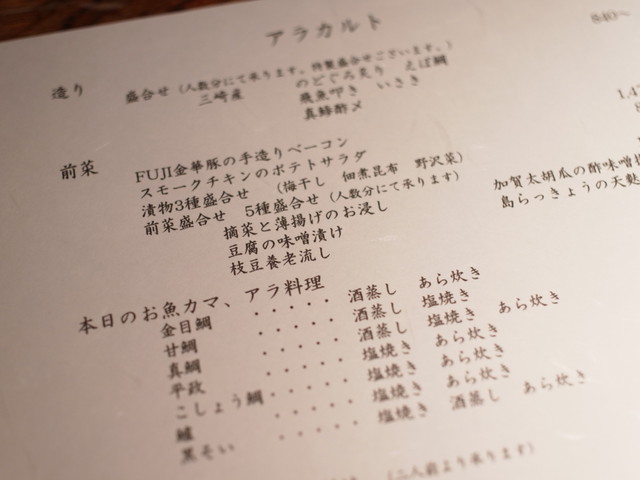 アラカルト
840〜
造り 盛合せ (人数分にて承ります。特製盛合せございます。)
三崎産 のどぐろ炙り えぼ鯛
飛魚叩き いさき
真鯵酢〆
前菜 FUJI金華豚の手造りベーコン
スモークチキンのポテトサラダ
漬物3種盛合せ (梅干し 佃煮昆布 野沢菜)
前菜盛合せ 5種盛合せ (人数分にて承ります)
摘菜と薄揚げのお浸し
豆腐の味噌漬け
枝豆養老流し
加賀太胡瓜の酢味噌
島らっきょうの天麩
本日のお魚カマ、アラ料理
金目鯛 ・・・・・ 酒蒸し あら炊き
甘鯛 ・・・・・ 酒蒸し 塩焼き
真鯛 ・・・・・ 酒蒸し 塩焼き あら炊き
平政 ・・・・・ 塩焼き あら炊き
こしょう鯛・・・・・ 塩焼き あら炊き
鱸 ・・・・・ 塩焼き あら炊き
黒そい ・・・・・ 塩焼き 酒蒸し あら炊き
(二人前より承ります)